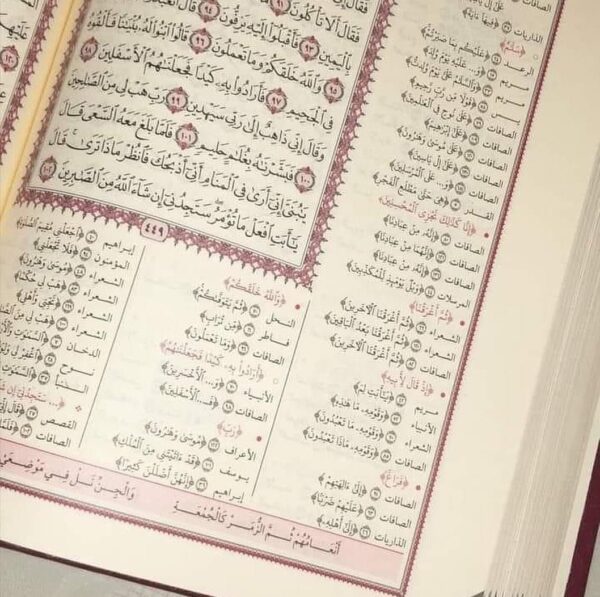 فَقَالَ أَلَا تَأْكُلُونَ
بِالْيَمِينِ ٩٣ فَأَقْبَلُوا إِلَيْهِ يَزِفُّونَ ٩٤
٩٥ وَاللَّهُ خَلَقَكُمْ وَمَا تَعْمَلُونَ ٩٦ قَالُوا ابْنُوا لَهُ بُنْيَانًا فَأَلْقُوهُ
فِي الْجَحِيمِ ٩٧ فَأَرَادُوا بِهِ كَيْدًا فَجَعَلْنَاهُمُ الْأَسْفَلِينَ ٩٨
وَقَالَ إِنِّي ذَاهِبٌ إِلَى رَبِّي سَيَهْدِينِ ٩٩ رَبِّ هَبْ لِي مِنَ الصَّالِحِينَ
١٠٠ فَبَشَّرْنَاهُ بِغُلَامٍ حَلِيمٍ ١٠١ فَلَمَّا بَلَغَ مَعَهُ السَّعْيَ قَالَ
يَا بُنَيَّ إِنِّي أَرَى فِي الْمَنَامِ أَنِّي أَذْبَحُكَ فَانْظُرْ مَاذَا تَرَى قَالَ
يَا أَبَتِ افْعَلْ مَا تُؤْمَرُ سَتَجِدُنِي إِنْ شَاءَ اللَّهُ مِنَ الصَّابِرِينَ
٤٤٩
الذاريات
﴿سَلَامٌ﴾
الرعد ﴿عَلَيْكُم بِمَا صَبَرْتُمْ﴾
مريم
مريم ﴿وَالسَّلَامُ عَلَيَّ يَوْمَ وُلِدتُّ﴾
يس ﴿قَوْلًا مِّن رَّبٍّ رَّحِيمٍ﴾
الصافات ﴿عَلَى نُوحٍ فِي الْعَالَمِينَ﴾
الصافات ﴿عَلَى إِبْرَاهِيمَ﴾
الصافات ﴿عَلَى مُوسَى وَهَارُونَ﴾
الصافات ﴿عَلَى إِلْ يَاسِينَ﴾
الصافات ﴿وَ... عَلَى الْمُرْسَلِينَ﴾
القدر ﴿هِيَ حَتَّى مَطْلَعِ الْفَجْرِ﴾
﴿إِنَّا كَذَلِكَ نَجْزِي الْمُحْسِنِينَ﴾
الصافات ﴿إِنَّهُ مِنْ عِبَادِنَا﴾
الصافات ﴿إِنَّهُمَا مِنْ عِبَادِنَا﴾
الصافات ﴿إِنَّهُ مِنْ عِبَادِنَا﴾
المرسلات ﴿وَيْلٌ يَوْمَئِذٍ لِّلْمُكَذِّبِينَ﴾
﴿ثُمَّ أَغْرَقْنَا﴾
الشعراء ﴿ثُمَّ أَغْرَقْنَا الْآخَرِينَ﴾
الشعراء ﴿ثُمَّ أَغْرَقْنَا بَعْدُ الْبَاقِينَ﴾
الصافات ﴿ثُمَّ أَغْرَقْنَا الْآخَرِينَ﴾
﴿إِذْ قَالَ لِأَبِيهِ﴾
مريم ﴿يَا أَبَتِ لِمَ﴾
الأنبياء ﴿وَقَوْمِهِ مَا هَذِهِ﴾
الشعراء ﴿وَقَوْمِهِ مَا تَعْبُدُونَ﴾
الصافات ﴿وَقَوْمِهِ مَاذَا تَعْبُدُونَ﴾
﴿فَرَاغَ﴾
الصافات ﴿إِلَى آلِهَتِهِمْ﴾
الصافات ﴿عَلَيْهِمْ ضَرْبًا﴾
الذاريات ﴿إِلَى أَهْلِهِ﴾
﴿وَاللَّهُ خَلَقَكُمْ﴾
النحل ﴿ثُمَّ يَتَوَفَّاكُمْ﴾
فاطر ﴿مِّن تُرَابٍ﴾
الصافات ﴿وَمَا تَعْمَلُونَ﴾
﴿أَرَادُوا بِهِ كَيْدًا فَجَعَلْنَاهُمُ﴾
الأنبياء ﴿وَ... الْأَخْسَرِينَ﴾
الصافات ﴿فَ... الْأَسْفَلِينَ﴾
﴿رَبِّ﴾
الأعراف ﴿مُوسَى وَهَارُونَ﴾
يوسف ﴿قَدْ آتَيْتَنِي مِنَ الْمُلْكِ﴾
إبراهيم ﴿إِنَّهُنَّ أَضْلَلْنَ كَثِيرًا﴾
إبراهيم ﴿اجْعَلْنِي مُقِيمَ الصَّلَاةِ﴾
المؤمنون ﴿فَلَا تَجْعَلْنِي﴾
الشعراء ﴿مُوسَى وَهَارُونَ﴾
الشعراء ﴿هَبْ لِي حُكْمًا﴾
الشعراء ﴿نَجِّنِي وَأَهْلِي﴾
الدخان
نوح ﴿اغْفِرْ لِي
﴿... سَتَجِدُنِي إِن
القصص ﴿قَالَ
الصافات
أَنْعَامُهُمْ ثُمَّ الزُّمَرْ كَالْجُمْعَةِ وَالْجِنِّ نَلْ فِي